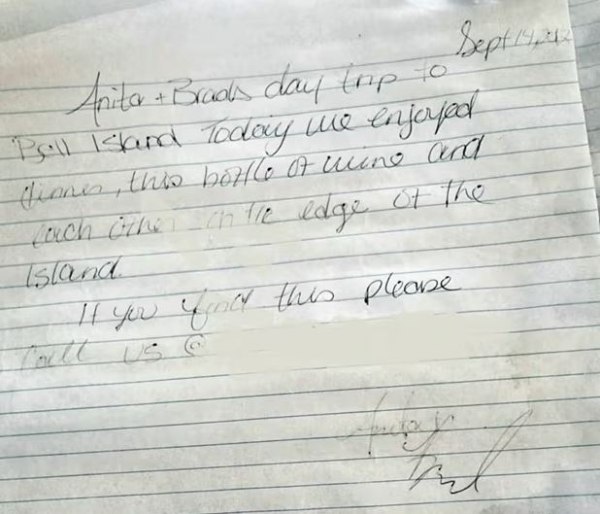 Sept 14, 2012
Anita + Brads day trip to
Bell Island Today we enjoyed
dinner, this bottle of wine and
each other on the edge of the
Island.
If you find this please
Call us @
Anita
Brad